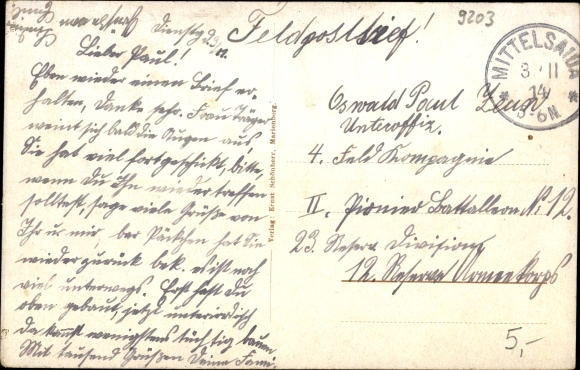 9203
Feldpostbrief!
Dienstag d. 3.
Lieber Paul!
Eben wieder einen Brief er,
halten, Danke sehr. Frau Träger
weint sich bald die Augen aus,
Sie hat viel fortgeschickt, bitte,
wenn du Ihn wieder treffen
solltest, sage viele Grüße von
Ihr u. mir, der Päckchen hat Sie
wieder zurück bek. u. ist noch
viel unterwegs. Erst hast Du
oben gebaut, jetzt unterirdisch
da kannst wenigstens tüchtig bauen
Mit tausend Grüßen Deine
Verlag: Ernst Schönherr, Marienberg.
MITTELSAIDA
3 11
14
5-6N
Oswald Paul
Unteroffiz.
4. Feld Kompagnie
II. Pionier Battalleon N: 12.
23. Reserv Division
12. Reserve Armeekorps
5,-